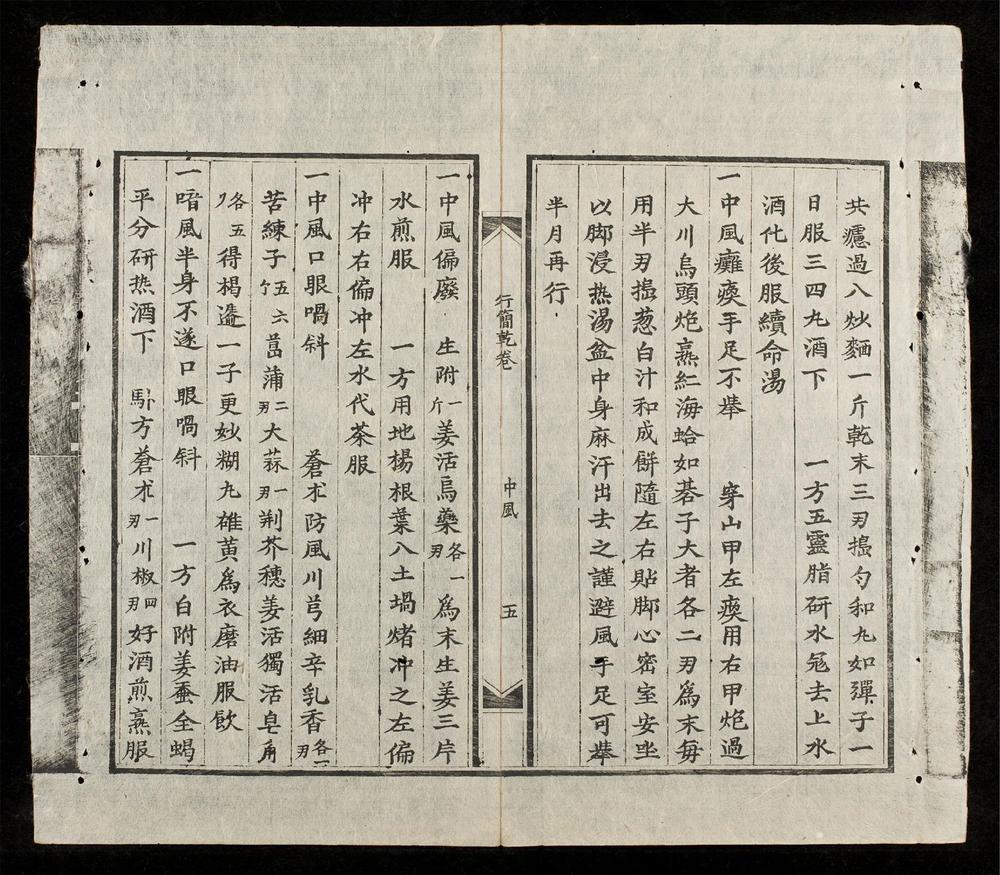 共濾過八炒麵一斤乾末三刄搗勻和丸如彈子一
日服三四丸酒下　一方五靈脂研水冤去上水
酒化後服續命湯
一中風癱瘓手足不舉　穿山甲左瘓用右甲炮過
大川烏頭炮熹紅海蛤如碁子大者各二刄爲末每
用半刄搗葱白汁和成餠隨左右貼脚心密室安坐
以脚浸热湯盆中身麻汗出去之謹避風手足可舉
半月再行
行簡乾卷　中風　五
一中風偏廢　生附一斤姜活烏藥各一刄爲末生姜三片
水煎服　一方用地楊根葉八土堝㷟冲之左偏
冲右右偏冲左水代茶服
一中風口眼喎斜　蒼朮防風川芎細辛乳香各一刄
苦練子五六个菖蒲二刄大蒜一刄荆芥穗姜活獨活皂角
各五刀得楬遾一子更妙糊丸雄黃爲衣磨油服飮
一喑風半身不遂口眼喎斜　一方白附姜蚕全蝎
平分研热酒下　方蒼朮一刄川椒四刄好酒煎熹服